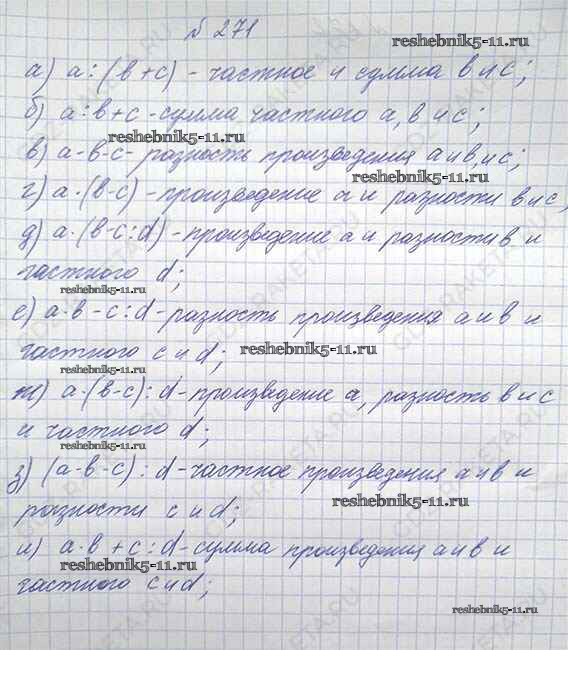 № 271
reshebnik5-11.ru
а) а:(в+с) - частное и сумма в и с;
б) а:в+с - сумма частного а, в и с;
reshebnik5-11.ru
в) а-в-с- разность произведения а и в, и с;
reshebnik5-11.ru
г) а·(в-с) - произведение а и разности в и с,
д) а·(в-с:d) - произведение а и разности в и
частного d;
reshebnik5-11.ru
е) а·в-с:d - разность произведения а и в и
частного с и d;
reshebnik5-11.ru
ж) а·(в-с):d - произведение а, разность в и с
и частного d;
reshebnik5-11.ru
з) (а-в-с):d - частное произведения а и в и
разности с и d;
reshebnik5-11.ru
и) а·в+с:d - сумма произведения а и в и
reshebnik5-11.ru
частного с и d;
reshebnik5-11.ru